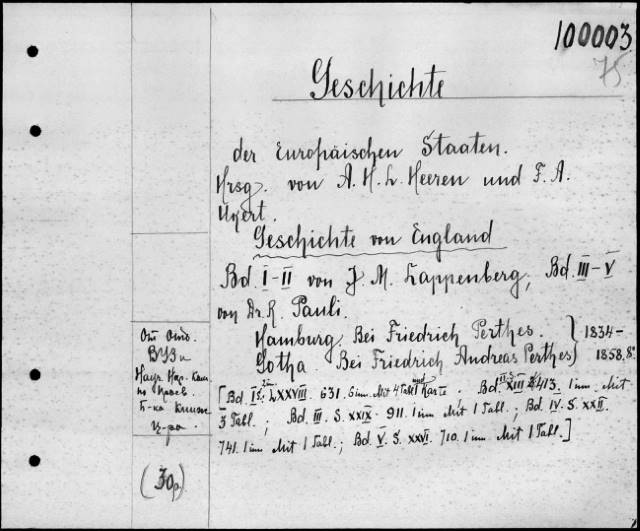 100003
75
Geschichte
der Europäischen Staaten.
Hrsg. von A. H. L. Heeren und F. A.
Ukert.
Geschichte von England
Bd. I-II von J. M. Lappenberg, Bd. III-V
von Dr. R. Pauli.
Hamburg. Bei Friedrich Perthes. } 1834-
Gotha. Bei Friedrich Andreas Perthes } 1858, 8°
[Bd. I S. LXXVIII. 631. 6 nn. Mit 4 Tabl. und 1 Karte. Bd. II S. XIII 413. 1 nn. Mit
3 Tabl.; Bd. III. S. XXIX. 911. 1 nn Mit 1 Tabl.; Bd. IV. S. XXII.
741. 1 nn Mit 1 Tabl.; Bd. V. S. XXVI. 710. 1 nn. Mit 1 Tabl.]
От Отд.
ВУЗ и
Научн.
по
Б-ка
(30р)